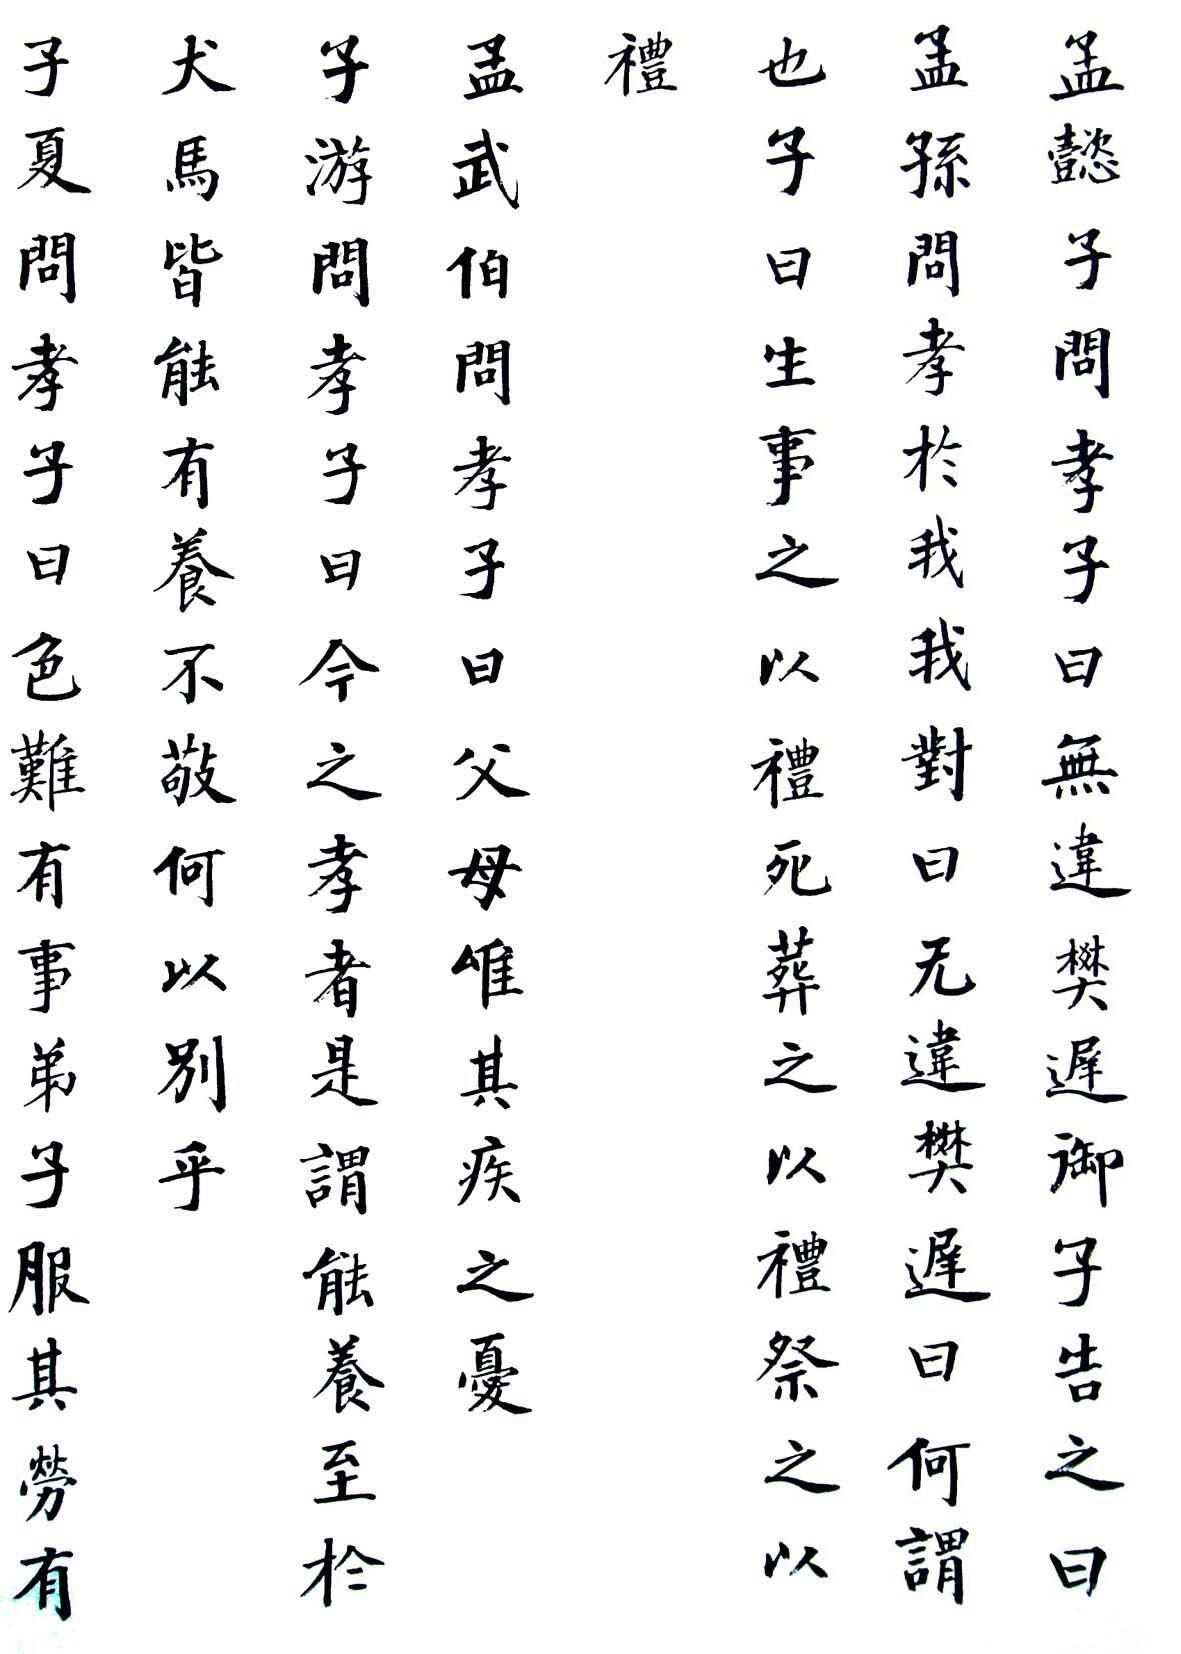 孟懿子問孝子曰無違樊遲御子告之曰
孟孫問孝於我我對曰无違樊遲曰何謂
也子曰生事之以禮死葬之以禮祭之以
禮
孟武伯問孝子曰父母唯其疾之憂
子游問孝子曰今之孝者是謂能養至於
犬馬皆能有養不敬何以別乎
子夏問孝子曰色難有事弟子服其勞有